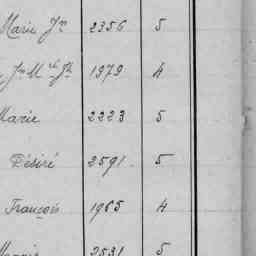 Marie Jn 2356 5
Jn M el Jh 1979 4
Marie 2223 5
Désiré 2591 5
François 1965 4
2531 5